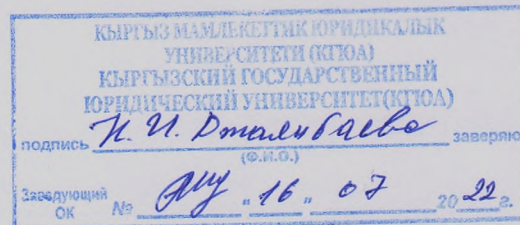 КЫРГЫЗ МАМЛЕКЕТТИК ЮРИДИКАЛЫК
УНИВЕРСИТЕТИ (КГЮА)
КЫРГЫЗСКИЙ ГОСУДАРСТВЕННЫЙ
ЮРИДИЧЕСКИЙ УНИВЕРСИТЕТ(КГЮА)
подпись Н. И. Джалибаева заверяю
(Ф.И.О.)
Заведующий
ОК № " 16 " 07 2022 г.